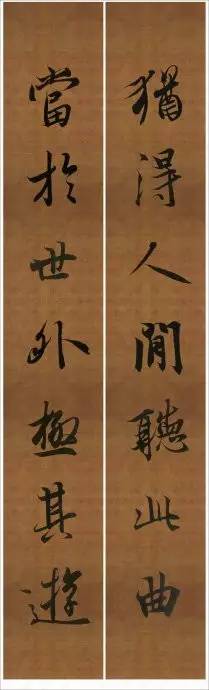 猶得人間聽此曲
當於世外極其遊